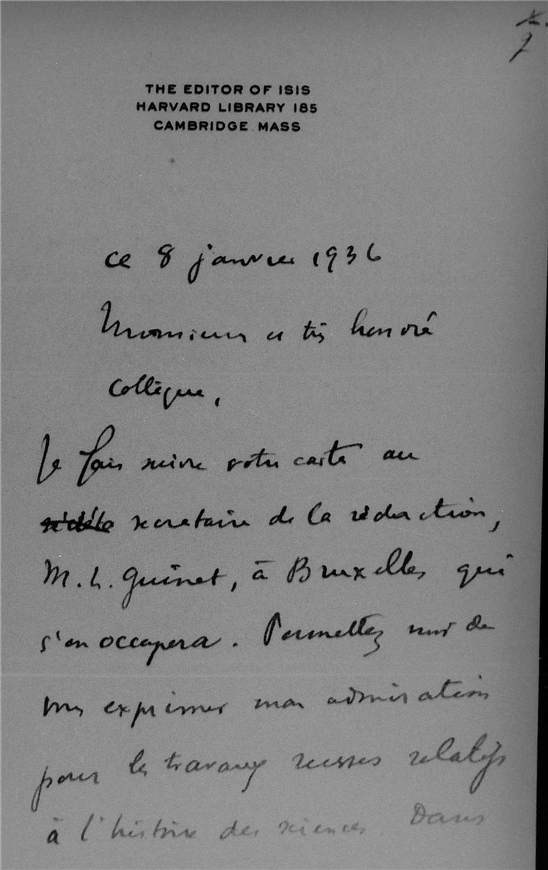 THE EDITOR OF ISIS
HARVARD LIBRARY 185
CAMBRIDGE MASS
ce 8 janvier 1936
Monsieur et très honoré
collègue,
Je fais suivre votre carte au
secrétaire de la rédaction,
M. L. Guinet, à Bruxelles qui
s'en occupera. Permettez moi de
vous exprimer mon admiration
pour les travaux russes relatifs
à l'histoire des sciences. Dans